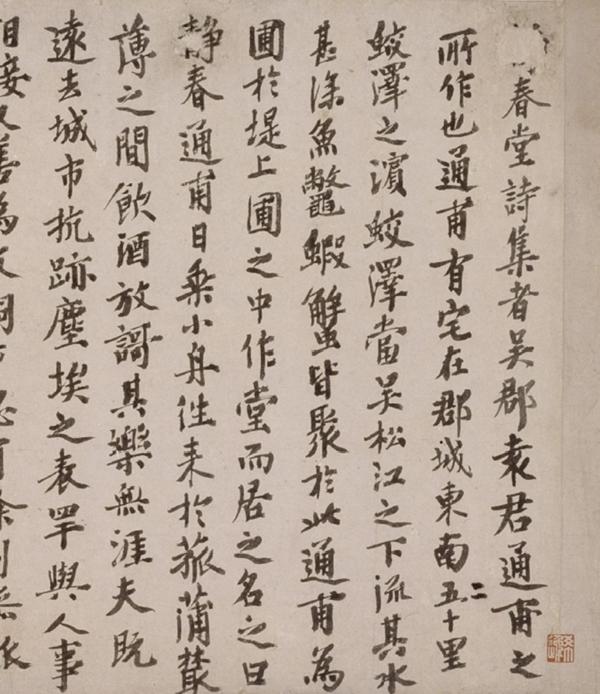 春堂詩集者吳郡袁君通甫之
所作也通甫有宅在郡城東南五二十里
蛟澤之濱蛟澤當吳松江之下流其水
甚深魚鼈蝦蟹皆聚於此通甫為
圃於堤上圃之中作堂而居之名之曰
静春通甫日乘小舟往来於菰蒲藂
薄之間飲酒放謌其樂無涯夫既
遠去城市抗跡塵埃之表罕與人事
相接又善為文詞